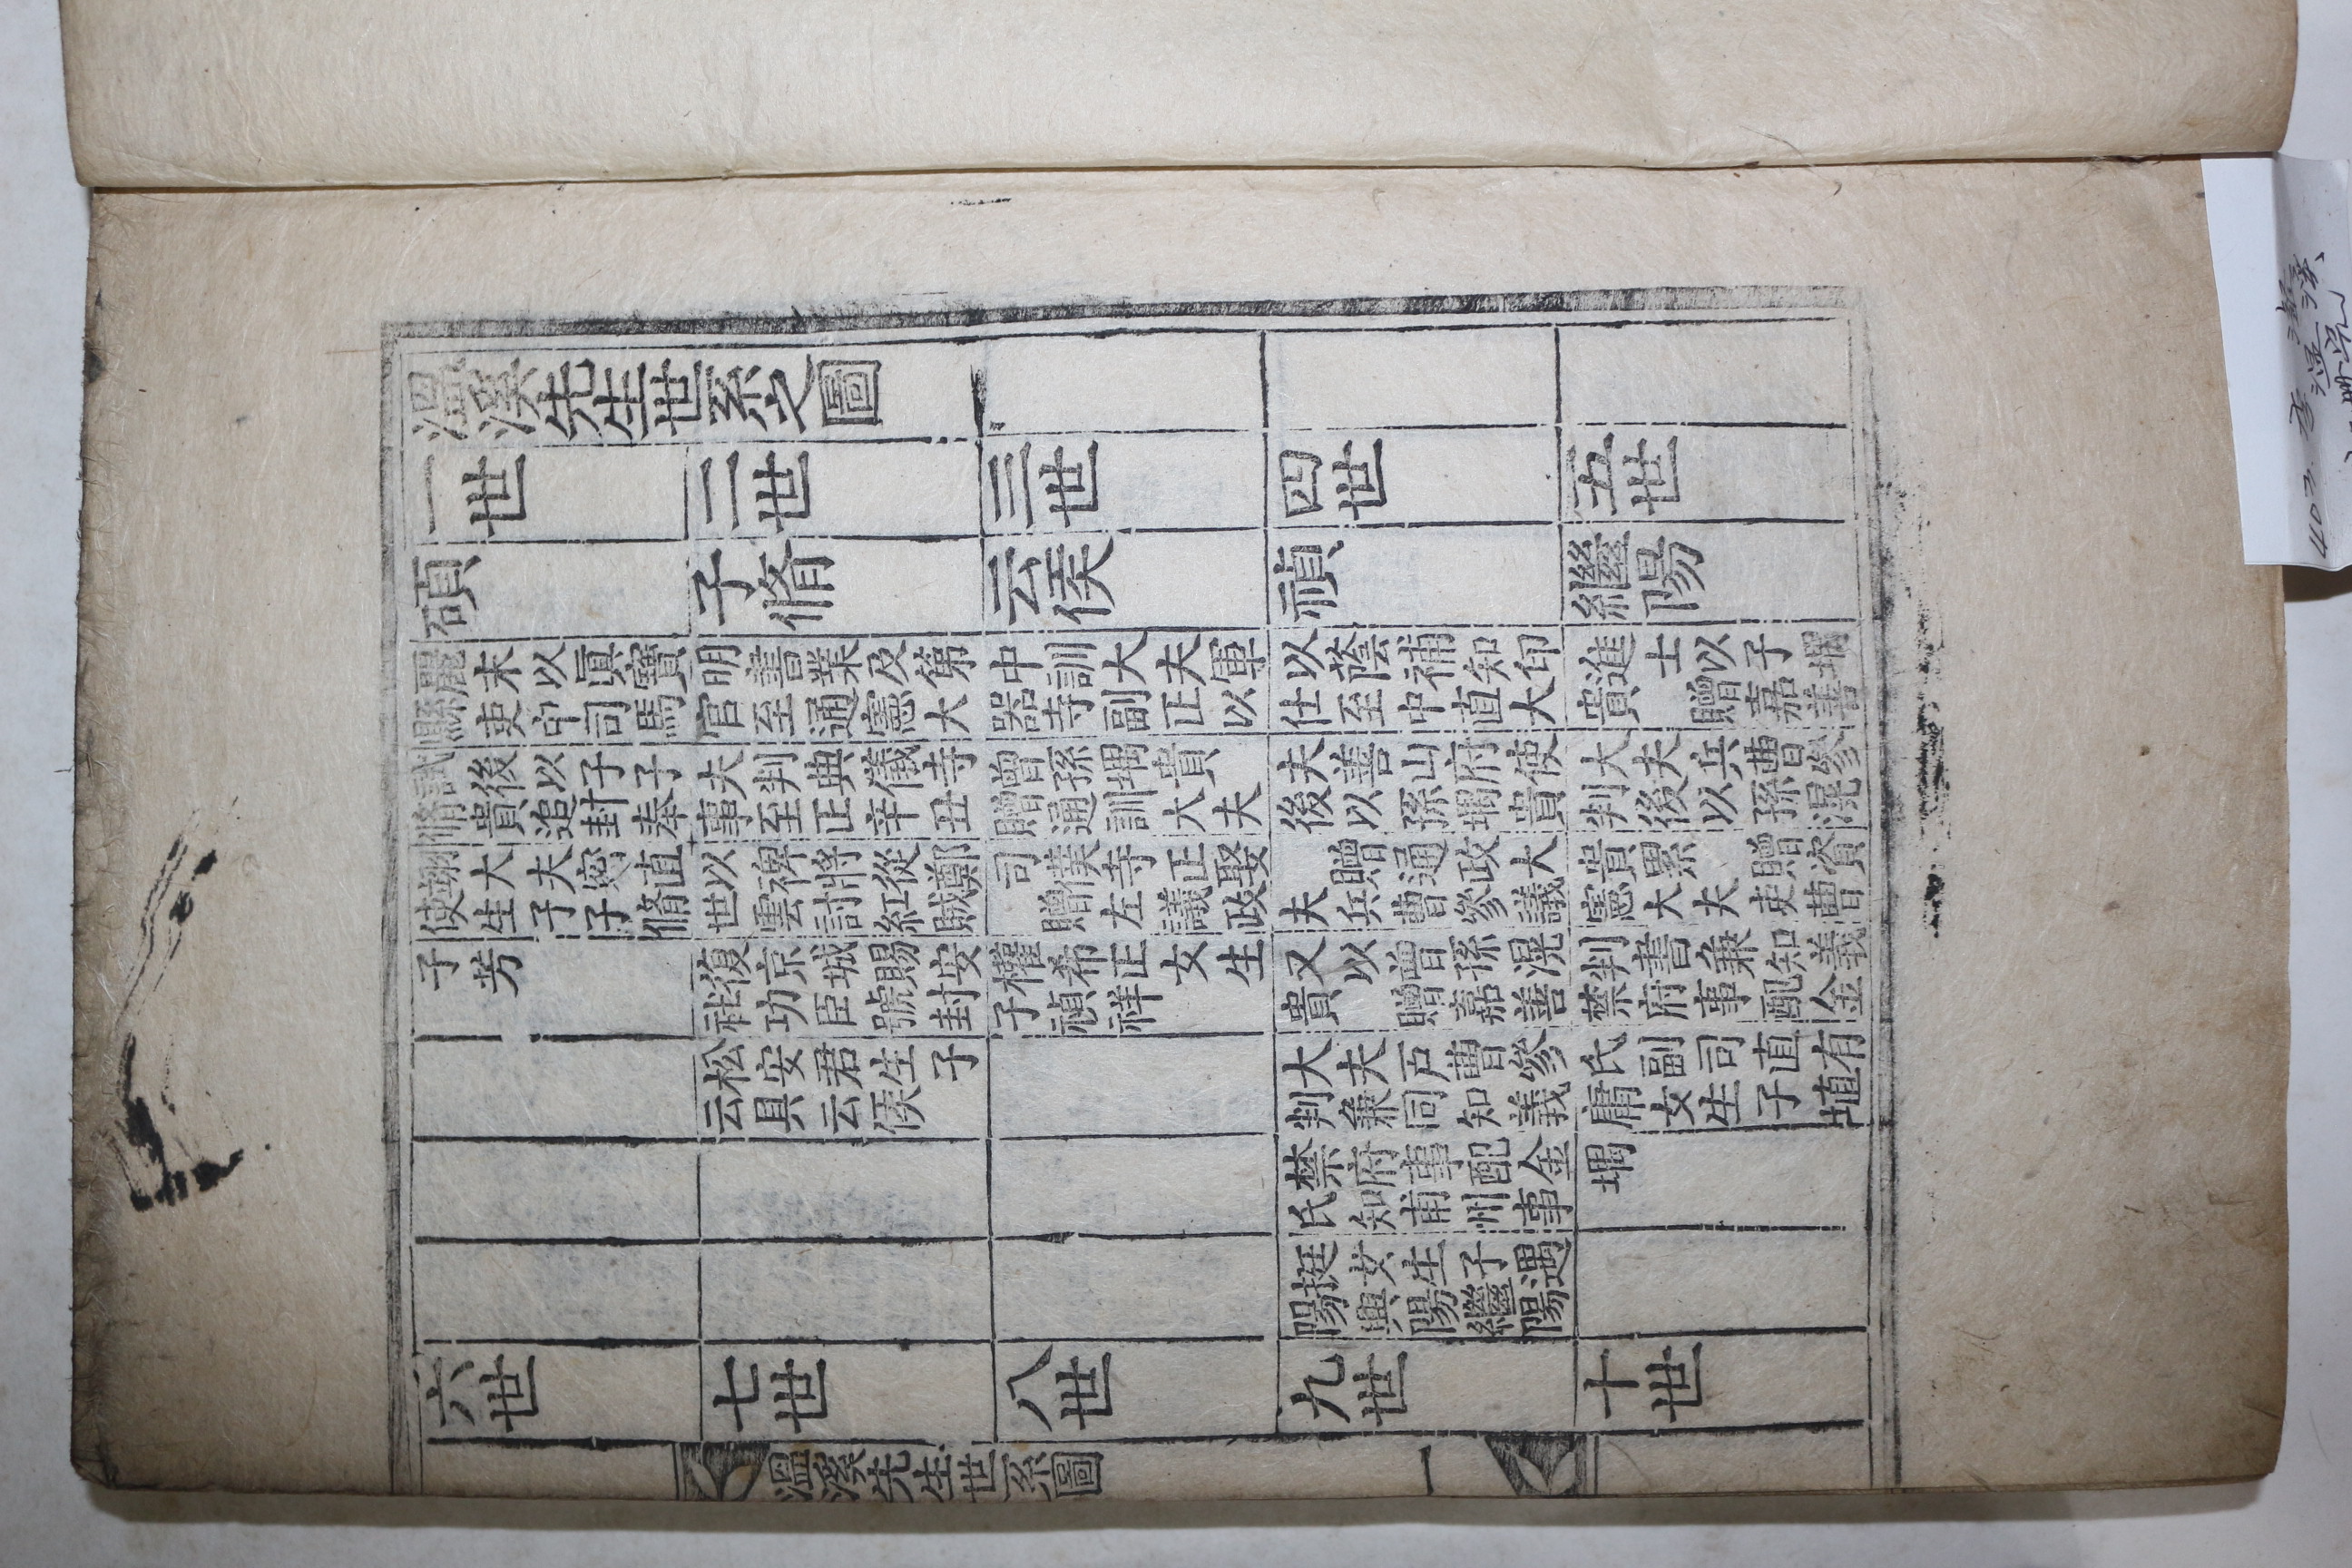 溫溪先生世系之圖
一世
碩
麗末以眞寶
縣吏中司馬
試後以子子
脩貴追封奉
翊大夫密直
使生子子脩
子芳
二世
子脩
明書業及第
官至通憲大
夫判典儀寺
事至正辛丑
以裨將從鄭
世雲討紅賊
復京城賜安
社功臣號封
松安君生子
云具云侯
三世
云侯
中訓大夫軍
器寺副正以
曾孫堣貴
贈通訓大夫
司僕寺正娶
贈左議政
權希正女生
子禎祥
四世
禎
以蔭補知印
仕至中直大
夫善山府使
後以孫堣貴
贈通政大
夫兵曹參議
又以曾孫滉
貴 贈嘉善
大夫戶曹參
判兼同知義
禁府事配金
氏知甫州事
挺女生子遇
陽興陽繼陽
五世
繼陽
進士以子堣
貴 贈嘉善
大夫兵曹參
判後以孫滉
貴累 贈資
憲大夫吏曹
判書兼知義
禁府事配金
氏副司直有
庸女生子埴
堣
六世
七世
八世
九世
十世
溫溪先生世系圖
一
403. 李溫溪